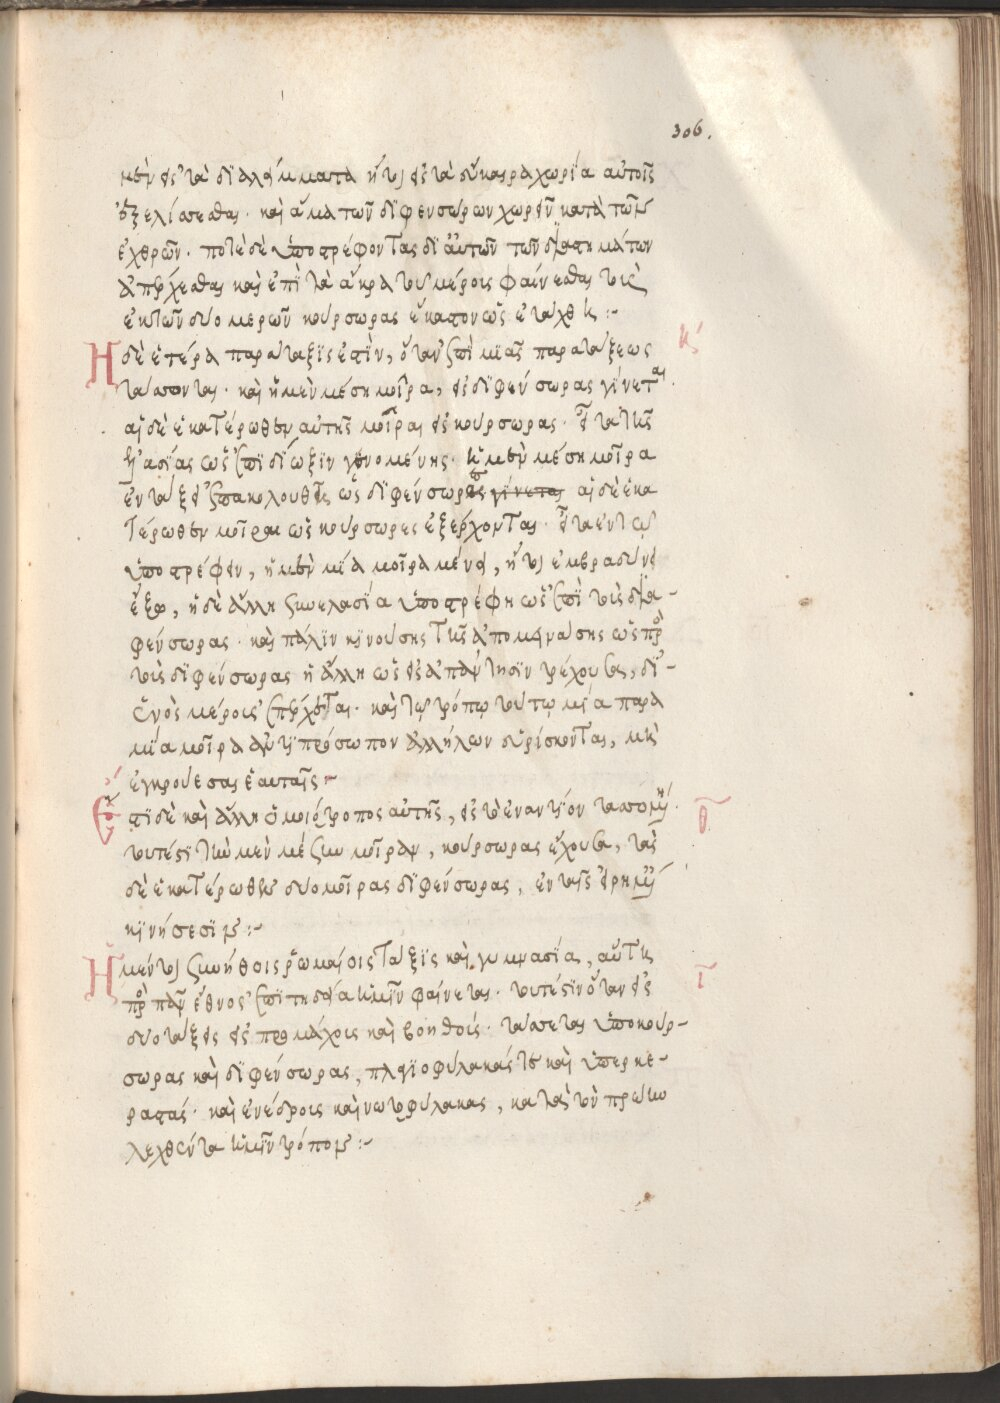 306.
μὲν εἰς τὰ διαλείμματα ἤτοι εἰς τὰ εὔκαιρα χωρία αὐτοῖς
ἐξελίσσεσθαι· καὶ ἅμα τῶν διφενσώρων χωρεῖν κατὰ τῶν
ἐχθρῶν· ποτὲ δὲ ὑποστρέφοντας δι' αὐτῶν τῶν διαστημάτων
διέρχεσθαι καὶ ἐπὶ τὰ ἄκρα τοῦ μέρους φαίνεσθαι τοὺς
ἐκ τῶν δύο μερῶν κούρσωρας ἕκαστον ὡς ἐτάχθη :-
κ΄
Ἡ δὲ ἑτέρα παράταξις ἐστὶν, ὅταν ἐπὶ μιᾶς παρατάξεως
τάσσονται· καὶ ἡ μὲν μέση μοῖρα, εἰς διφένσωρας γίνεται.
αἱ δὲ ἑκατέρωθεν αὐτῆς μοῖραι εἰς κούρσωρας·
ὡς ἐπὶ δίωξιν γενομένης· ἡ μὲν μέση μοῖρα
ἐν τάξει ἐπακολουθεῖ ὡς διφένσωρες γίνεται αἱ δὲ ἑκα
τέρωθεν μοῖραι ὡς κούρσωρες ἐξέρχονται· εἶτα ἐν τῷ
ὑποστρέφειν, ἡ μὲν μία μοῖρα μένει, ἤτοι ἐμβραδύνει
ἔξω, ἡ δὲ ἄλλη συνελασία ὑποστρέφῃ ὡς ἐπὶ τοὺς δια-
φένσωρας· καὶ πάλιν κινούσης τῆς ἀπομεινάσης ὡς πρὸς
τοὺς διφένσωρας ἡ ἄλλη ὡς εἰς ἀπάντησιν τρέχουσα, δι'-
ἑνὸς μέρους ἐπέρχεται· καὶ τῷ τρόπῳ τούτῳ μία παρὰ
μία μοῖρα ἀντιπρόσωπον ἀλλήλων εὑρίσκονται, μὴ
ἐγκρούεσας ἑαυταῖς :-
θ
Ἔστι δὲ καὶ ἄλλη ὁμοιότροπος αὐτῆς, εἰς τὸ ἐναντίον τασσομένη·
τουτέστι τὴν μὲν μέσην μοῖραν, κούρσωρας ἔχουσα, τὰς
δὲ ἑκατέρωθεν δύο μοῖρας διφένσωρας, ἐν ταῖς εἰρημέναις
κινήσεσιν :-
ι
Ἡ μέντοι συνήθοις ῥωμαίοις τάξις καὶ γυμνασία, αὕτη
πρὸς πᾶν ἔθνος ἐπιτηδεία ἡμῖν φαίνεται· τουτέστιν ὅταν εἰς
δύο τάξεις εἰς προμάχους καὶ βοηθούς· τάσσεται ὑπὸ κούρ-
σωρας καὶ διφένσωρας, πλαγιοφύλακάς τε καὶ ὑπερκε-
ραστάς· καὶ ἐνέδρους καὶ νωτοφύλακας, κατὰ τὸν πρώτον
λεχθέντα ἡμῖν τρόπον :-